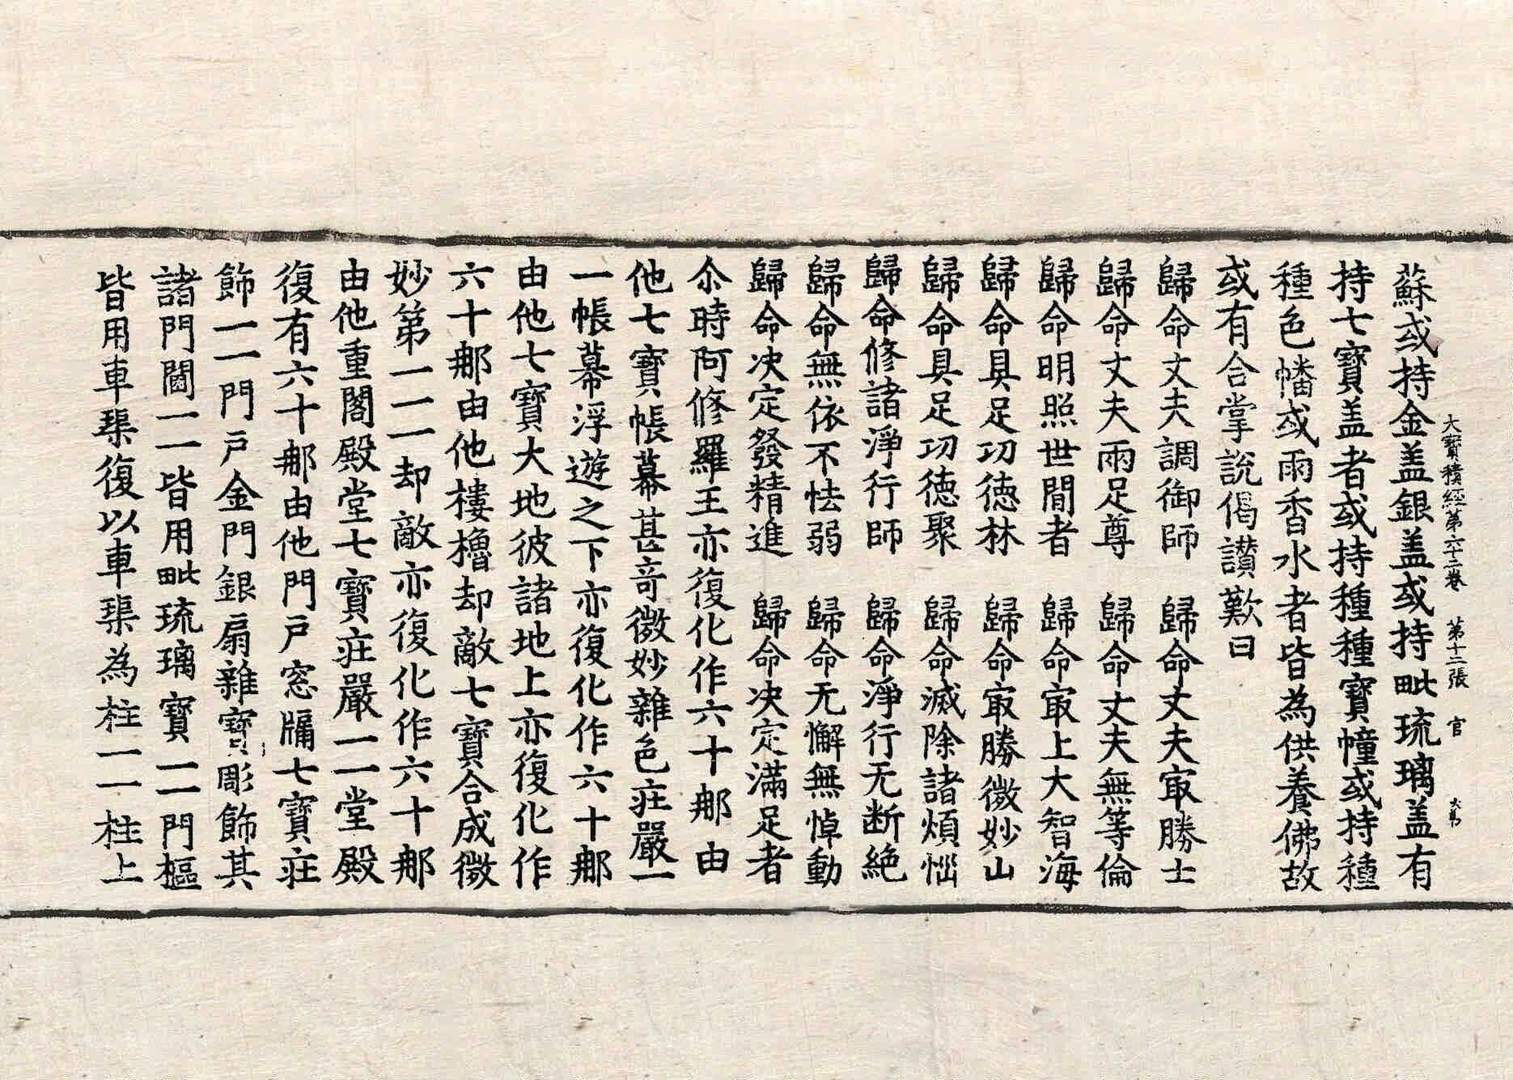 大寶積經第六十二卷　第十二張　官
蘇或持金盖銀盖或持毗琉璃盖有
持七寶盖者或持種種寶幢或持種
種色幡或雨香水者皆為供養佛故
或有合掌說偈讃歎曰
歸命丈夫調御師　歸命丈夫㝡勝士
歸命丈夫兩足尊　歸命丈夫無等倫
歸命明照世間者　歸命㝡上大智海
歸命具足功德林　歸命㝡勝微妙山
歸命具足功德聚　歸命滅除諸煩惱
歸命修諸淨行師　歸命淨行无断絶
歸命無依不怯弱　歸命无懈無悼動
歸命决定發精進　歸命决定滿足者
尒時阿修羅王亦復化作六十郍由
他七寶帳幕甚竒微妙雜色莊嚴一
一帳幕浮遊之下亦復化作六十郍
由他七寶大地彼諸地上亦復化作
六十郍由他樓櫓却敵七寶合成微
妙第一一一却敵亦復化作六十郍
由他重閣殿堂七寶莊嚴一一堂殿
復有六十郍由他門戸窓牖七寶莊
飾一一門戸金門銀扇雜寶彫飾其
諸門閫一一皆用毗琉璃寶一一門樞
皆用車𤦲復以車𤦲為柱一一柱上